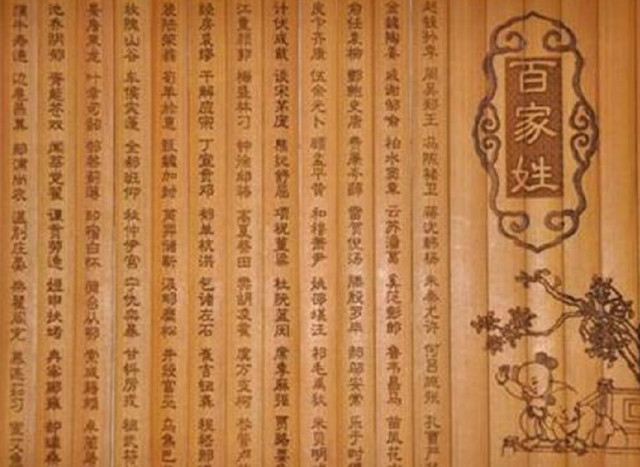 百家姓
赵钱孙李 周吴郑王 冯陈褚卫 蒋沈韩杨 朱秦尤许 何吕施张 孔曹严
金魏陶姜 戚谢邹喻 柏水窦章 云苏潘葛 奚范彭郎 鲁韦昌马 苗凤花
俞任袁柳 酆鲍史唐 费廉岑薛 雷贺倪汤 滕殷罗毕 郝邬安常 乐于时
皮卞齐康 伍余元卜 顾孟平黄 和穆萧尹 姚邵湛汪 祁毛禹狄 米贝明
计伏成戴 谈宋茅庞 熊纪舒屈 项祝董梁 杜阮蓝闵 席季麻强 贾路娄
江童颜郭 梅盛林刁 钟徐邱骆 高夏蔡田 樊胡凌霍 虞万支柯 昝管卢
经房裘缪 干解应宗 丁宣贲邓 郁单杭洪 包诸左石 崔吉钮龚 程嵇邢
裴陆荣翁 荀羊於惠 甄麴加封 芮羿储靳 汲邴糜松 井段富巫 乌焦巴
牧隗山谷 车侯宓蓬 全郗班仰 秋仲伊宫 宁仇栾暴 甘钭厉戎 祖武符
景詹束龙 叶幸司韶 郜黎蓟薄 印宿白怀 台从鄂 咸籍赖 卓蔺
池乔阴郁 胥能苍双 闻莘党翟 谭贡劳逄 姬申扶堵 冉宰郦雍 郤璩桑
濮牛寿通 边扈燕冀 郏浦尚农 温别庄晏 柴瞿阎充 慕连茹习 宦艾